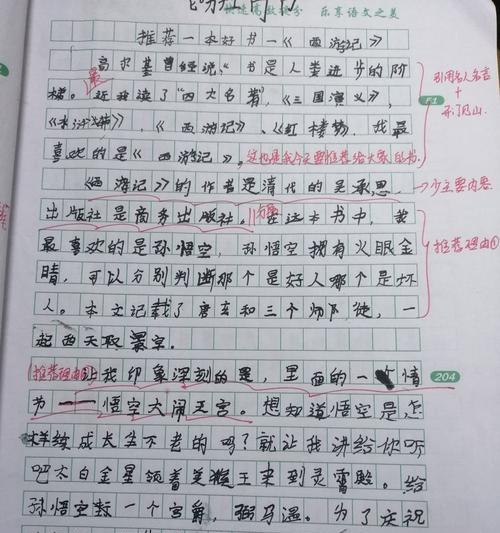 快速高效提分 乐享语文之美
推荐一本好书一《西游记》
高尔基曾经说:“书是人类进步的阶
梯。最近我读了“四大名著”,《三国演义》,
《水浒传》,《西游记》、《红楼梦,我最
喜欢的是《西游记》。这也是我今天要推荐给大家的书。
引用名人名言
+
开门见山。
《西游记》的作者是清代的吴承恩,
少主要内容
出版社是商务出版社。在这本书中,我
最喜欢的是孙悟空,孙悟空拥有火眼金
推荐理由①
睛,可以分别判断那个是好人哪个是坏
人。本文记载了唐玄和三个师徒,一
起西天取
(推荐理由②)
让我印象深刻的是,里面的一个情
204
节——悟空大闹天宫。想知道悟空是怎
样续成长生不老的吗?就让我讲给你听
吧太白金星领着美猴王来到灵霄殿。给
孙悟空封一个官爵,弼马温。为了庆祝